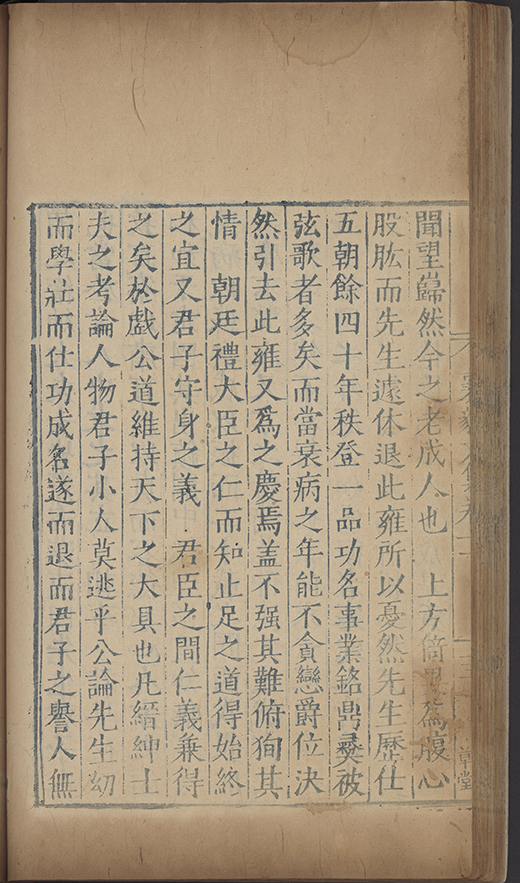 聞望巋然今之老成人也 上方倚 爲腹心
股肱而先生遽休退此雍所以憂然先生歷仕
五朝餘四十年秩登一品功名事業銘鼎彝被
弦歌者多矣而當衰病之年能不貪戀爵位決
然引去此雍又爲之慶焉盖不强其難俯狥其
情 朝廷禮大臣之仁而知止足之道得始終
之宜又君子守身之義 君臣之間仁義兼得
之矣於戲公道維持天下之大具也凡縉紳士
夫之考論人物君子小人莫逃乎公論先生幼
而學壯而仕功成名遂而退而君子之譽人無
草堂